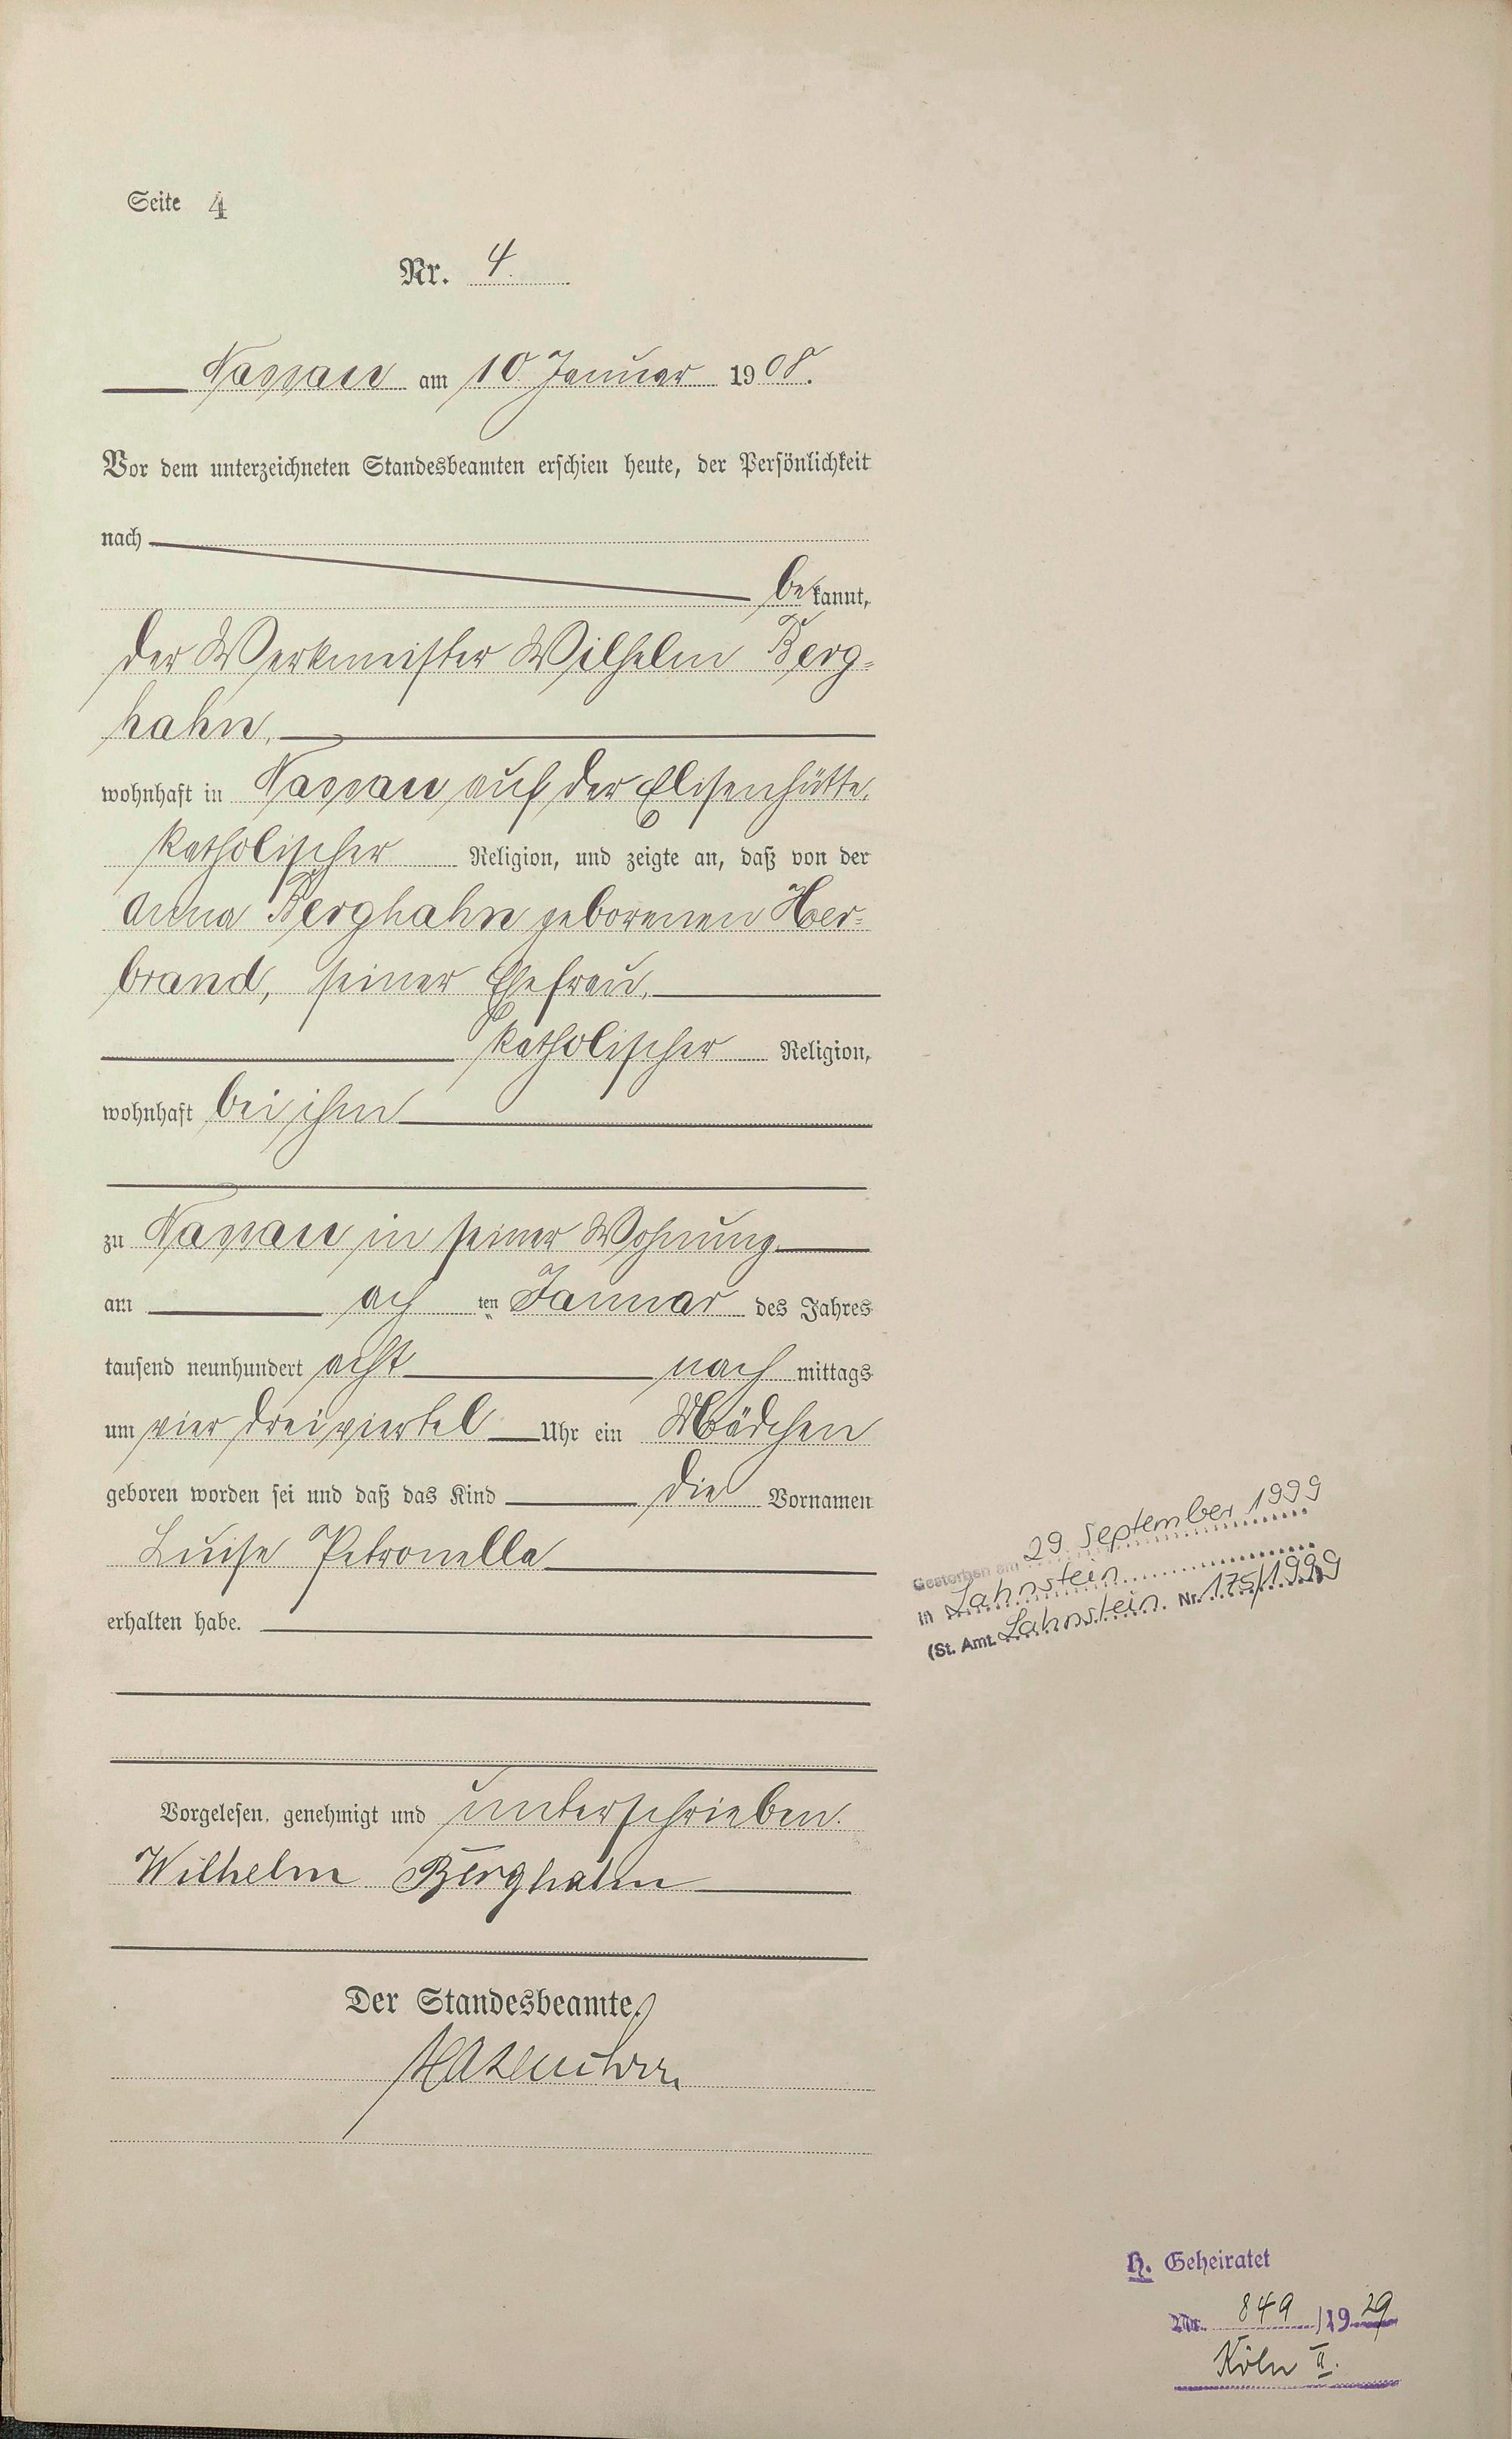 Seite 4
Nr. 4.
Nassau am 10 Januar 1908.
Vor dem unterzeichneten Standesbeamten erschien heute, der Persönlichkeit
nach
bekannt,
der Werkmeister Wilhelm Berg-
hahn,
wohnhaft in Nassau auf der Elisenhütte,
katholischer Religion, und zeigte an, daß von der
Anna Berghahn geborenen Her-
brand, seiner Ehefrau,
katholischer Religion,
wohnhaft bei ihm
zu Nassau in seiner Wohnung
am ach ten Januar des Jahres
tausend neunhundert acht nach mittags
um vier dreiviertel Uhr ein Mädchen
geboren worden sei und daß das Kind die Vornamen
Luise Petronella
erhalten habe.
Vorgelesen, genehmigt und unterschrieben.
Wilhelm Berghahn
Der Standesbeamte.
Gestorben am 29. September 1999
in Lahnstein
(St. Amt. Lahnstein. Nr. 175/1999
H. Geheiratet
Nr. 849 /1929
Köln II.